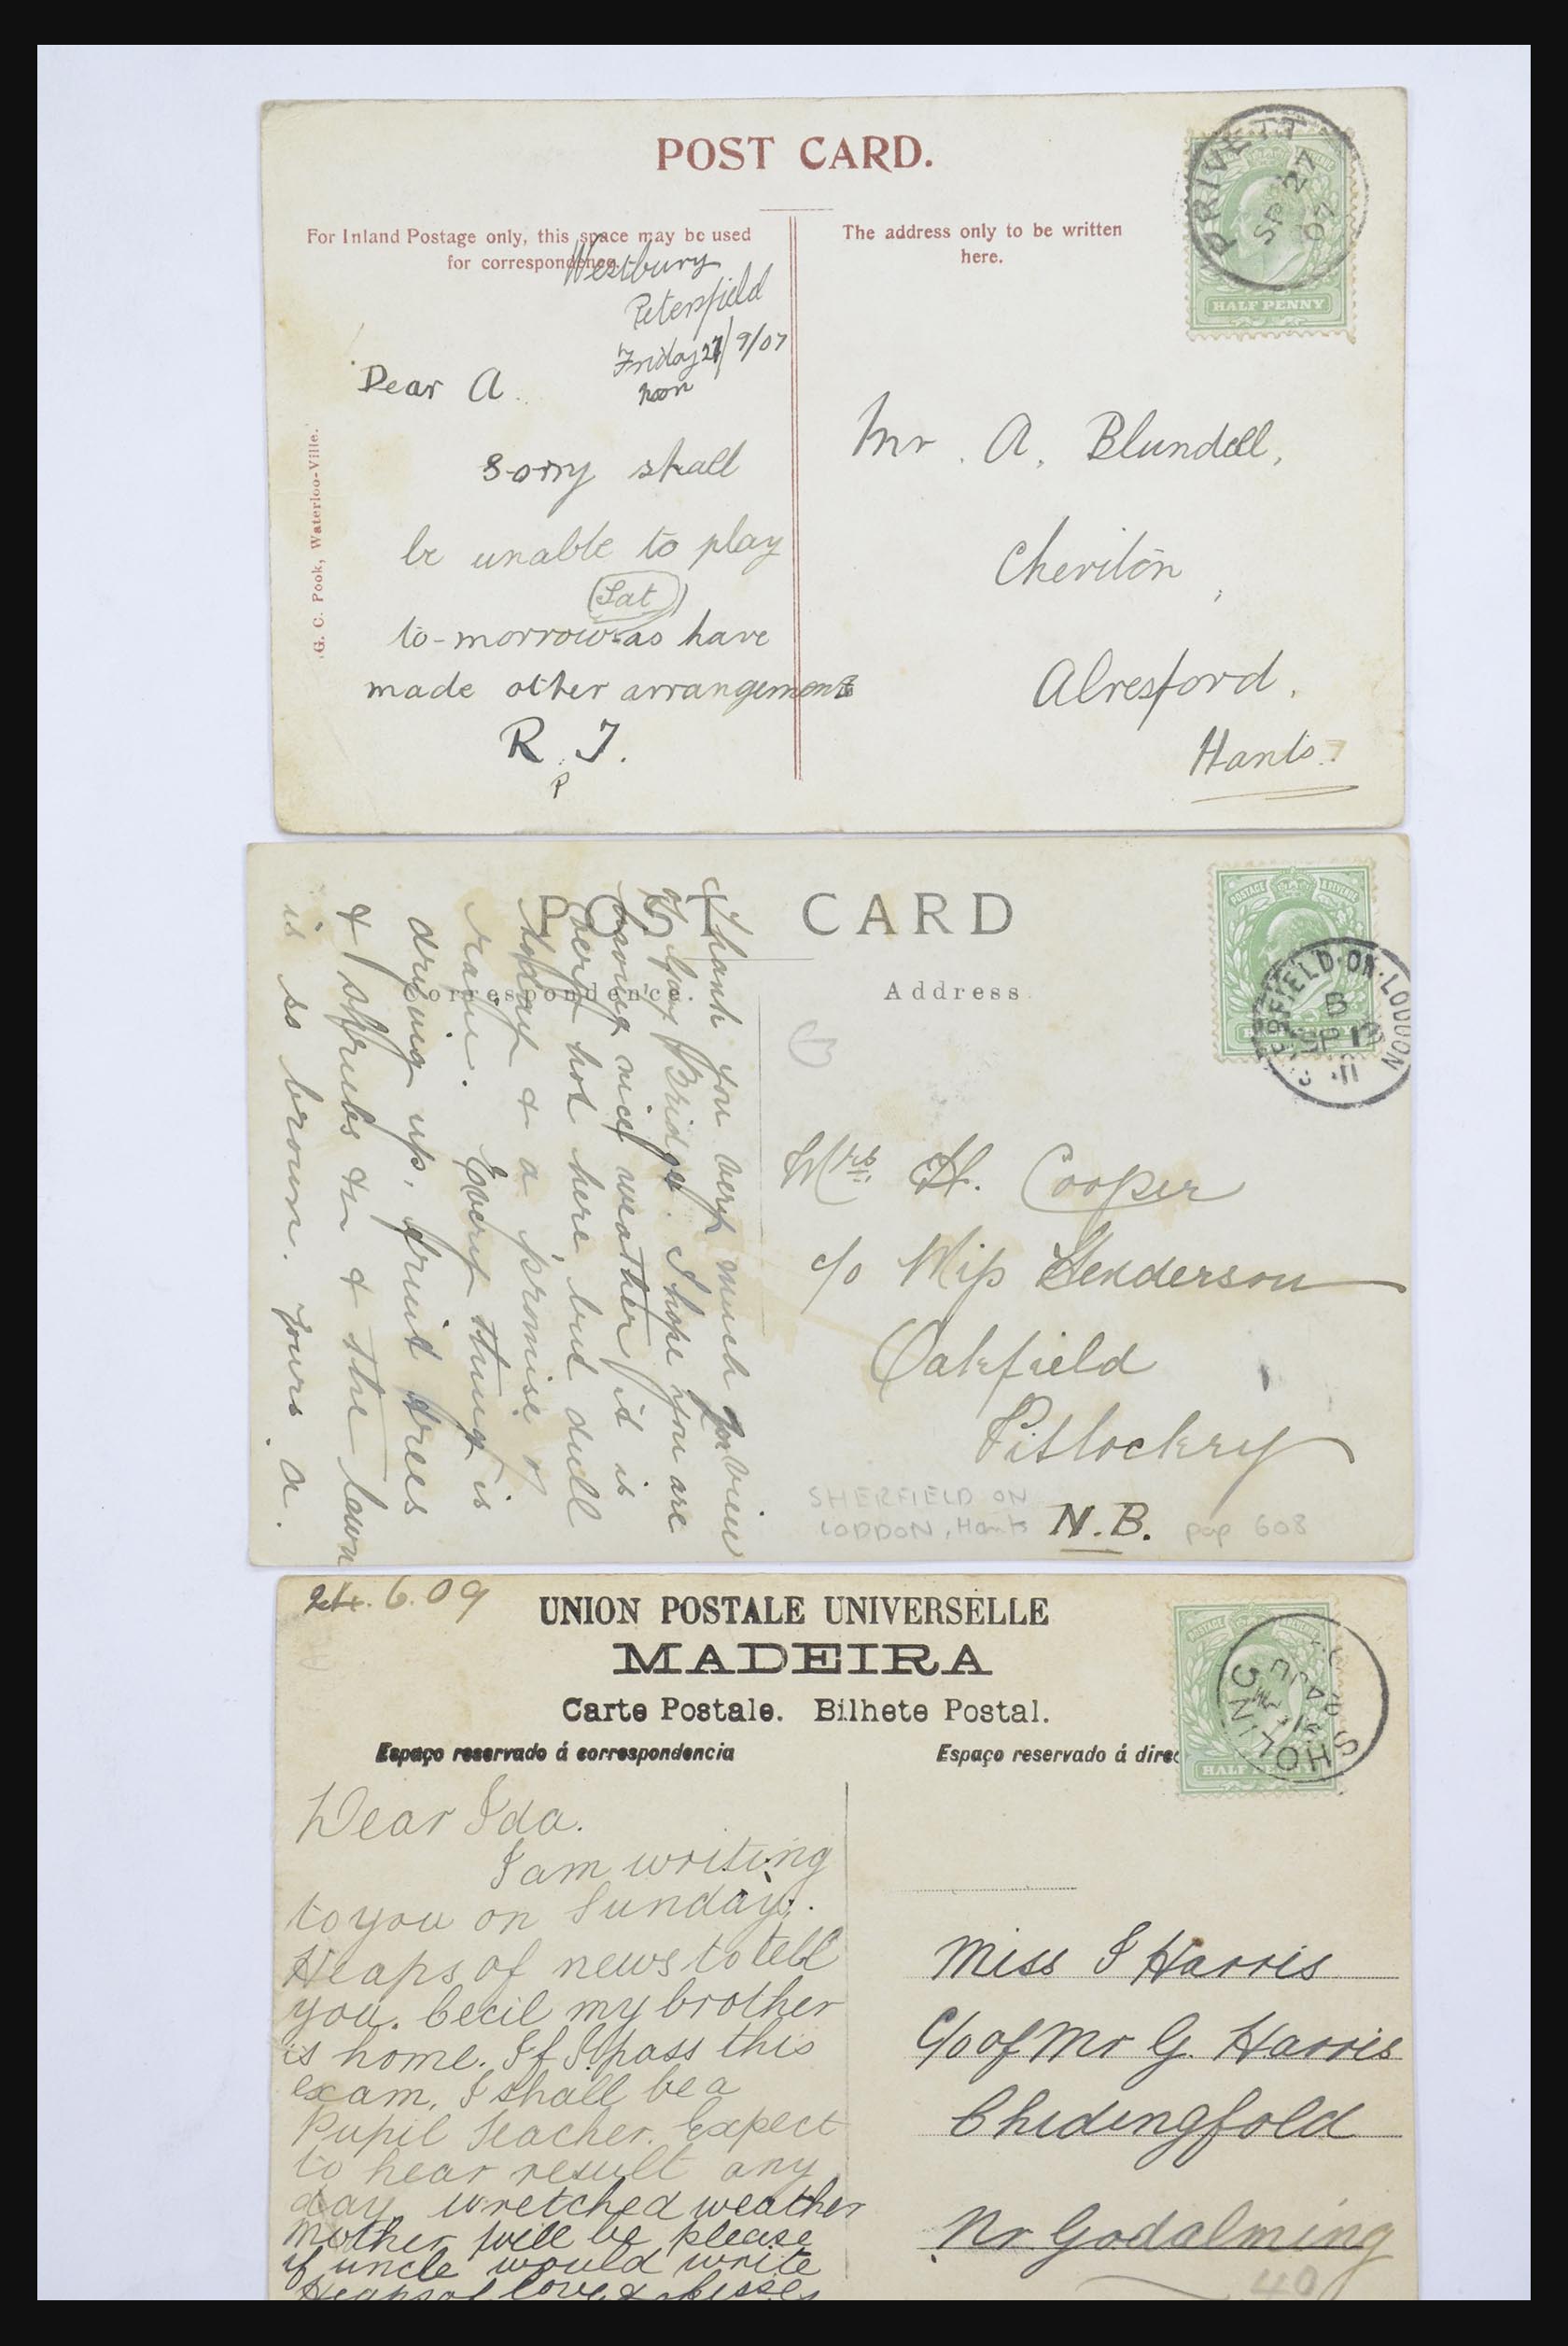 POST CARD.
For Inland Postage only, this space may be used
for correspondence.
The address only to be written
here.
PRIVETT
SP 27
07
HALF PENNY
G. C. Pook, Waterloo-Ville.
Westbury
Petersfield
Friday 27/9/07
noon
Dear A.
sorry shall
be unable to play
(Sat)
to-morrow as have
made other arrangements
R. J.
P
Mr. A. Blundell,
Cheriton,
Alresford.
Hants.
POST CARD
Correspondence.
Address
POSTAGE & REVENUE
SHERFIELD·ON·LODDON
B
SP 12
11
Thank you very much for view
Tay Bridge. I hope you are
having nice weather it is
very hot here, but dull
today & a promise of
rain. Every thing is
drying up, fruit trees
& shrubs & & the lawn
is so brown. Yours A.
Mrs. H. Cooper
c/o Miss Henderson
Oakfield
Pitlochry
N.B.
SHERFIELD ON
LODDON, Hants
pop 608
24.6.09
UNION POSTALE UNIVERSELLE
MADEIRA
Carte Postale. Bilhete Postal.
Espaço reservado á correspondencia
Espaço reservado á direc
POSTAGE & REVENUE
HALF PENNY
SHOLING
24 JU
Dear Ida.
I am writing
to you on Sunday.
Heaps of news to tell
you. Cecil my brother
is home. If I pass this
exam, I shall be a
Pupil Teacher. Expect
to hear result any
day wretched weather
Mother will be please
if uncle would write
Heaps of love & kisses
Miss I Harris
C/o of Mr G. Harris
Chidingfold
Nr Godalming
40